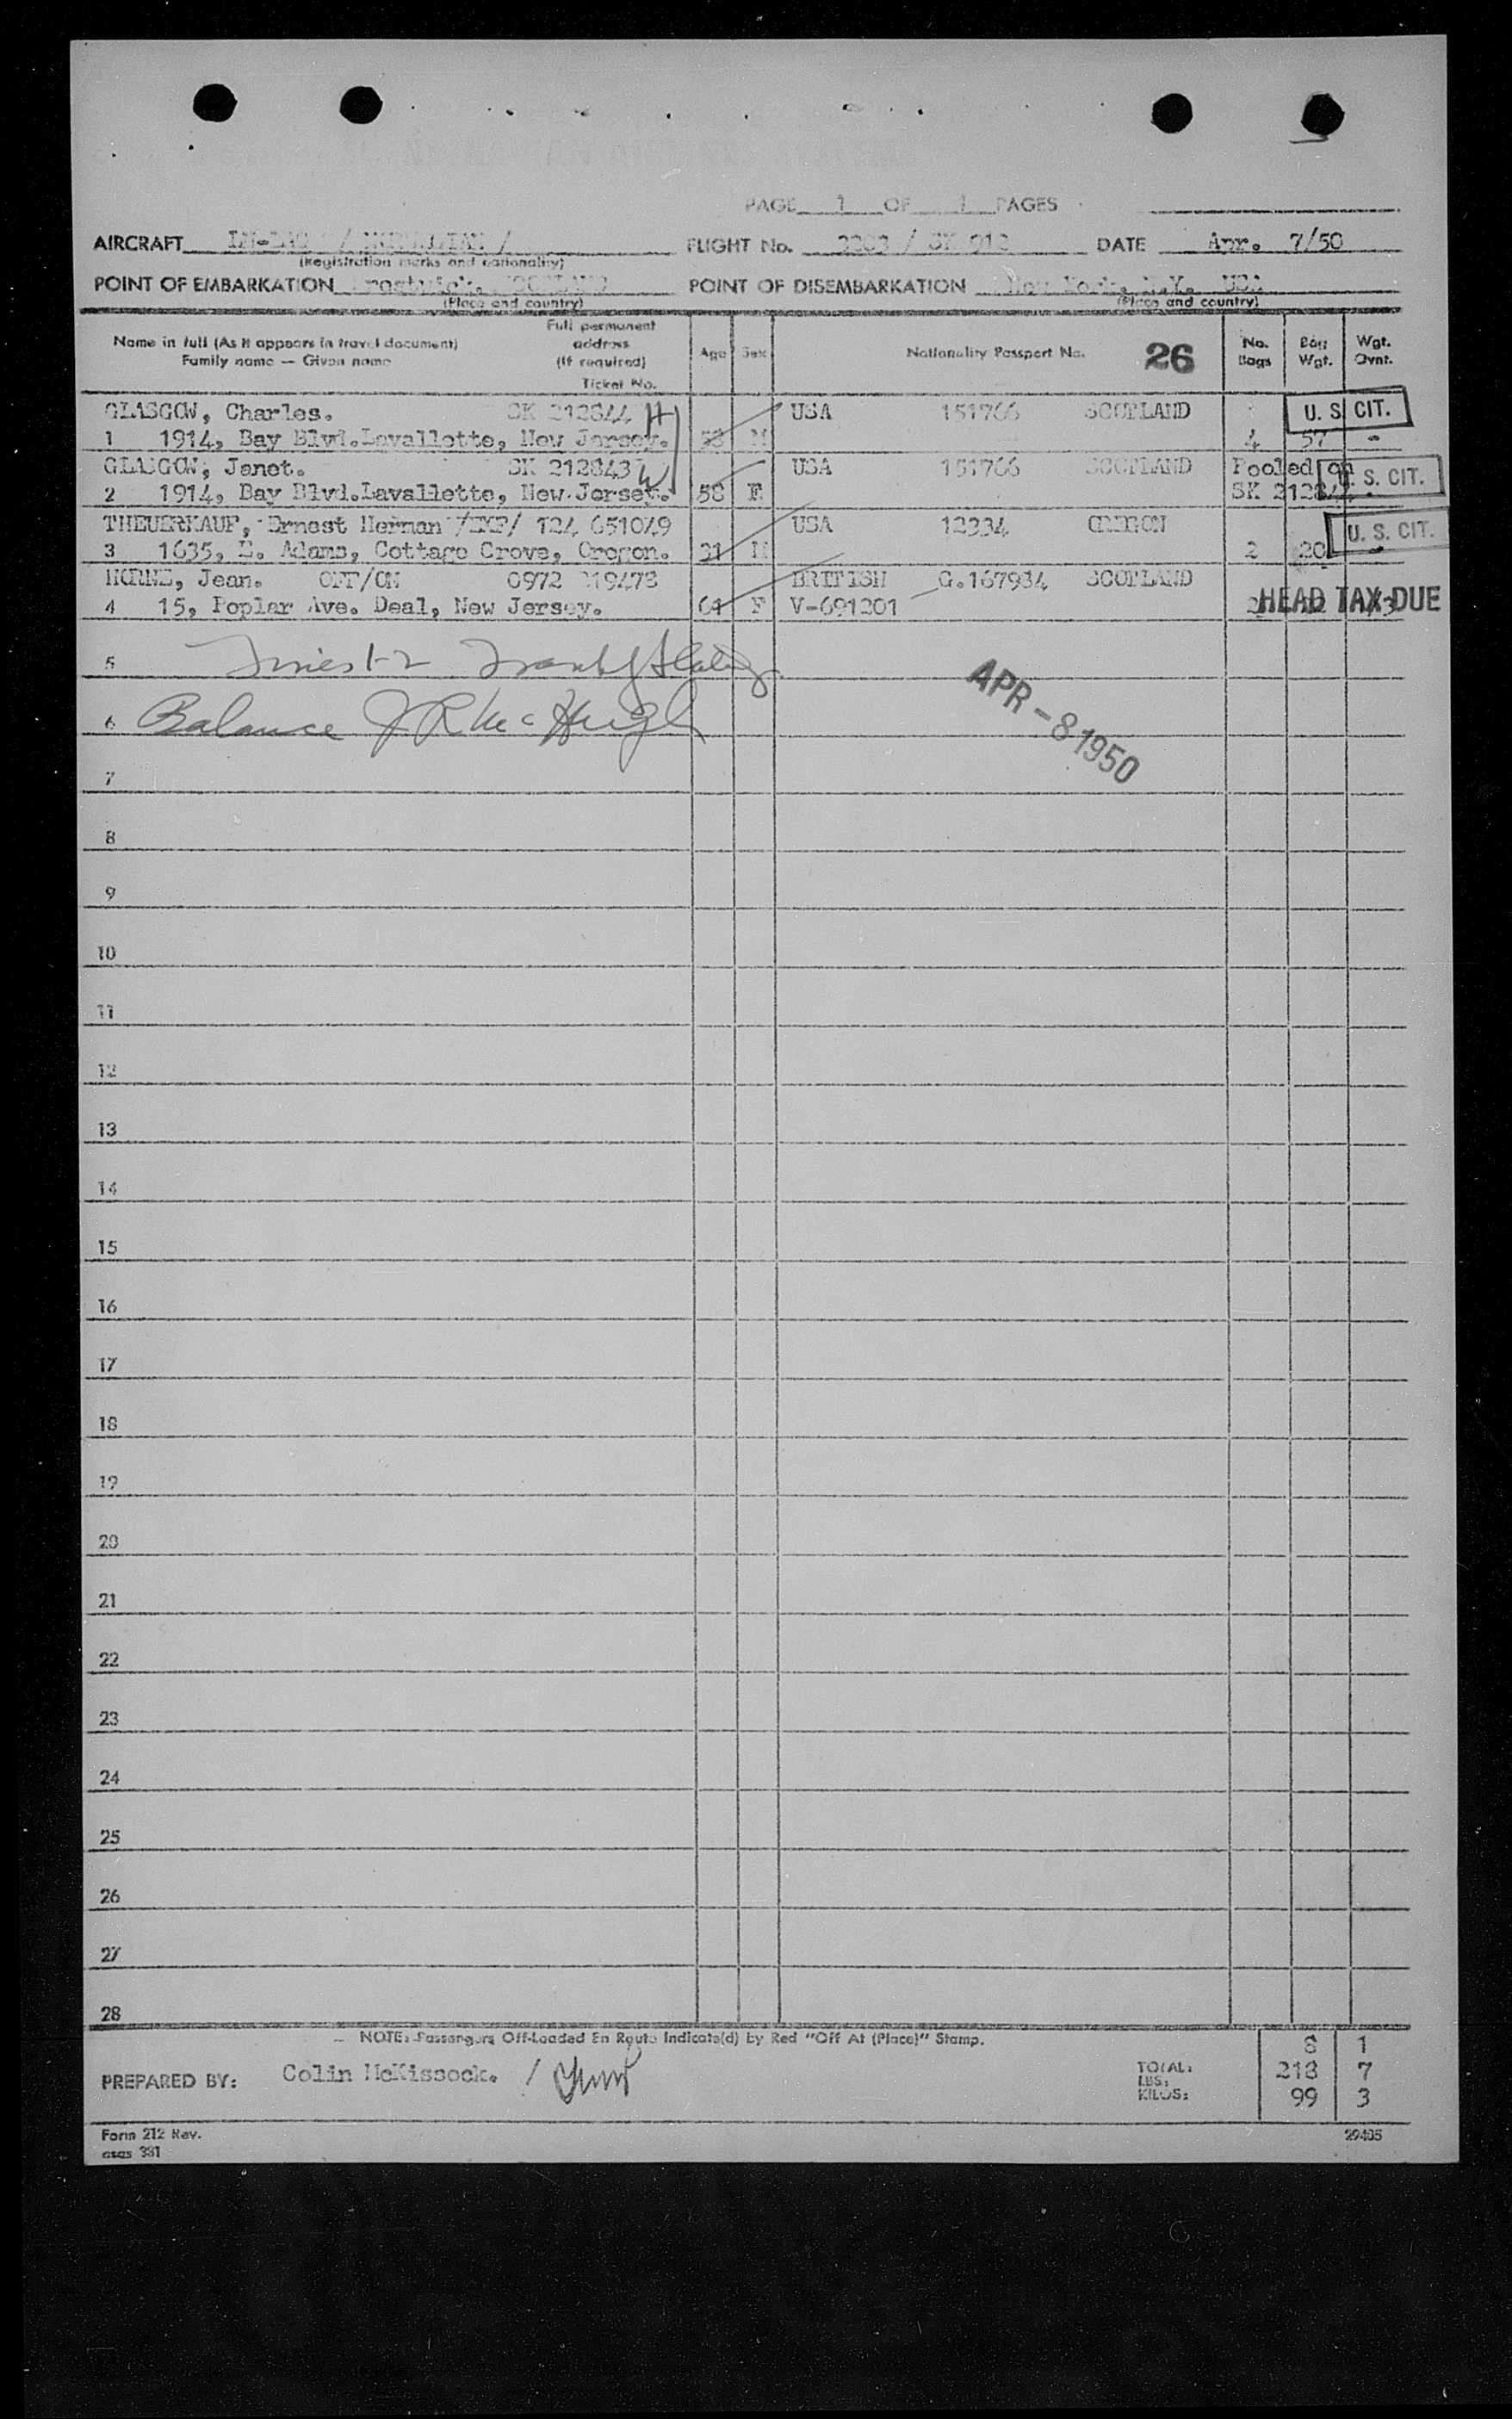 PAGE 1 OF 1 PAGES
AIRCRAFT / NORWEGIAN /
(Registration marks and nationality)
FLIGHT No. / SK 912
DATE Apr. 7/50
POINT OF EMBARKATION Prestwick, SCOTLAND
(Place and country)
POINT OF DISEMBARKATION New York, N.Y. USA
(Place and country)
Name in full (As it appears in travel document)
Family name — Given name
Full permanent
address
(If required)
Ticket No.
Age
Sex
Nationality Passport No.
26
No.
Bags
Bag
Wgt.
Wgt.
Ovnt.
GLASGOW, Charles. SK 212844 H USA 151766 SCOTLAND U. S. CIT.
1 1914, Bay Blvd.Lavallette, New Jersey. M 4 57 -
GLASGOW, Janet. SK 212843 W USA 151766 SCOTLAND Pooled on U. S. CIT.
2 1914, Bay Blvd.Lavallette, New Jersey. 58 F SK 212844 -
THEUERKAUF, Ernest Herman 124 651049 USA 12334 OREGON U. S. CIT.
3 1635, E. Adams, Cottage Grove, Oregon. 31 M 2 20 -
HORNE, Jean. OFF/ON 0972 219478 BRITISH G.167934 SCOTLAND
4 15, Poplar Ave. Deal, New Jersey. F V-691201 2 HEAD TAX DUE
5 Lines 1-2
6 Balance J R McHugh
APR - 8 1950
7
8
9
10
11
12
13
14
15
16
17
18
19
20
21
22
23
24
25
26
27
28
NOTE: Passengers Off-Loaded En Route Indicate(d) by Red "Off At (Place)" Stamp.
PREPARED BY: Colin McKissock. /
TOTAL: 8 1
LBS: 218 7
KILOS: 99 3
Form 212 Rev.
asas 381
29405